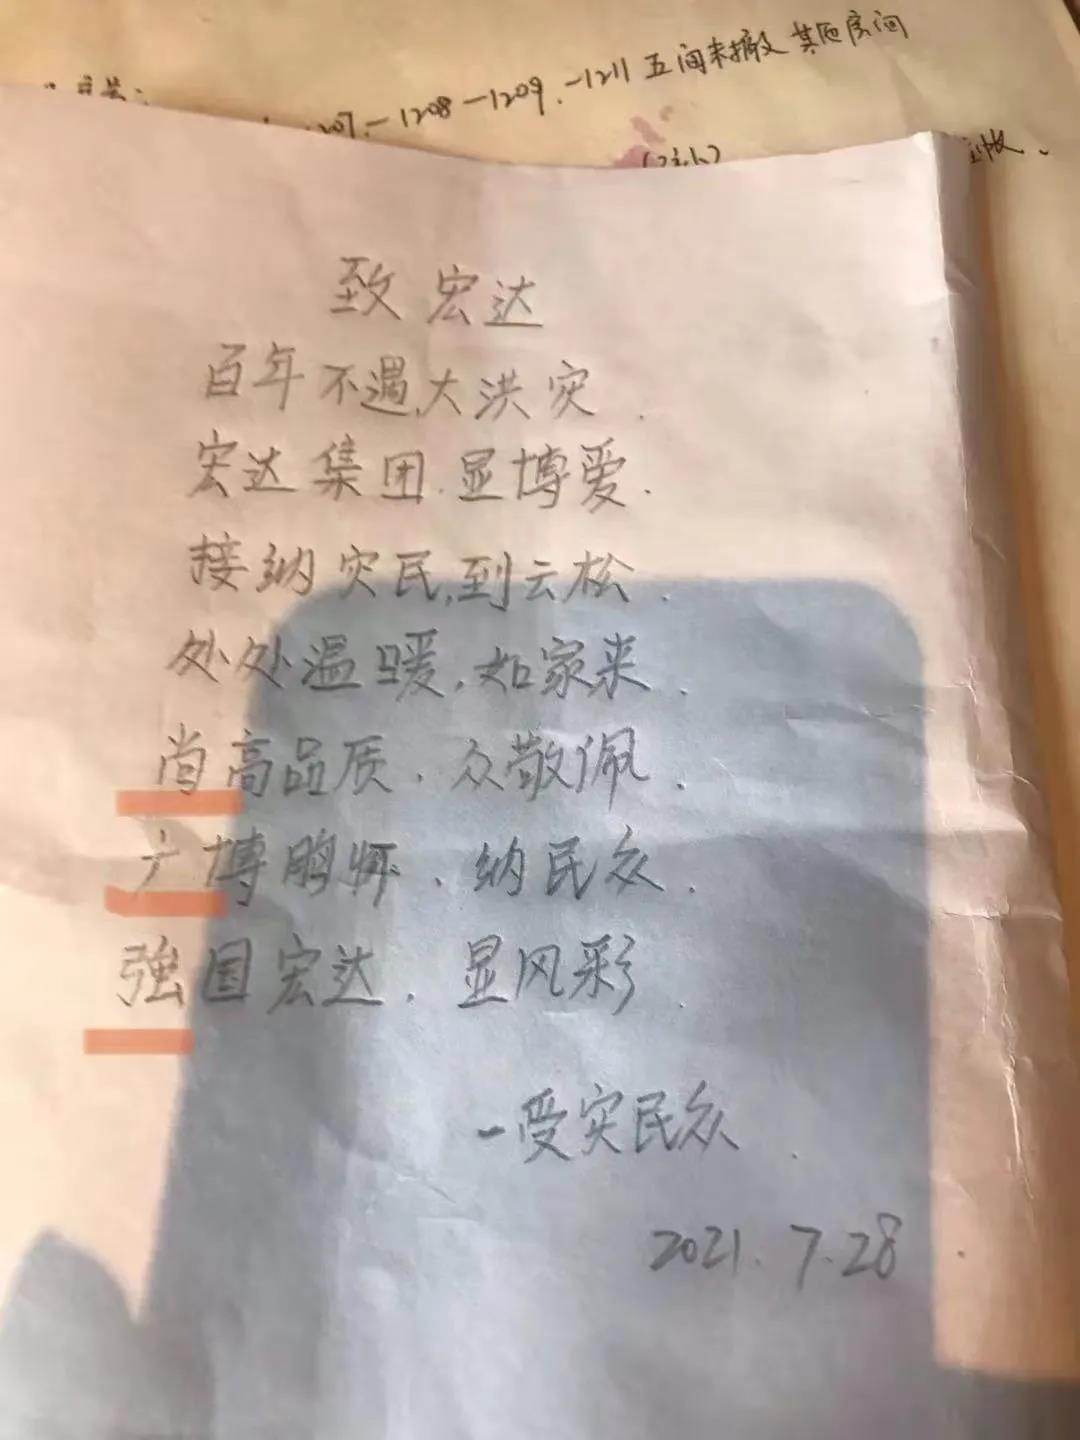 1207.－1208－1209.－1211 五间未撤 其他房间
致宏达
百年不遇,大洪灾.
宏达集团.显博爱.
接纳灾民,到云松.
处处温暖,如家来.
尚高品质.众敬佩.
广博胸怀.纳民众.
強国宏达.显风彩.
一受灾民众.
2021.7.28